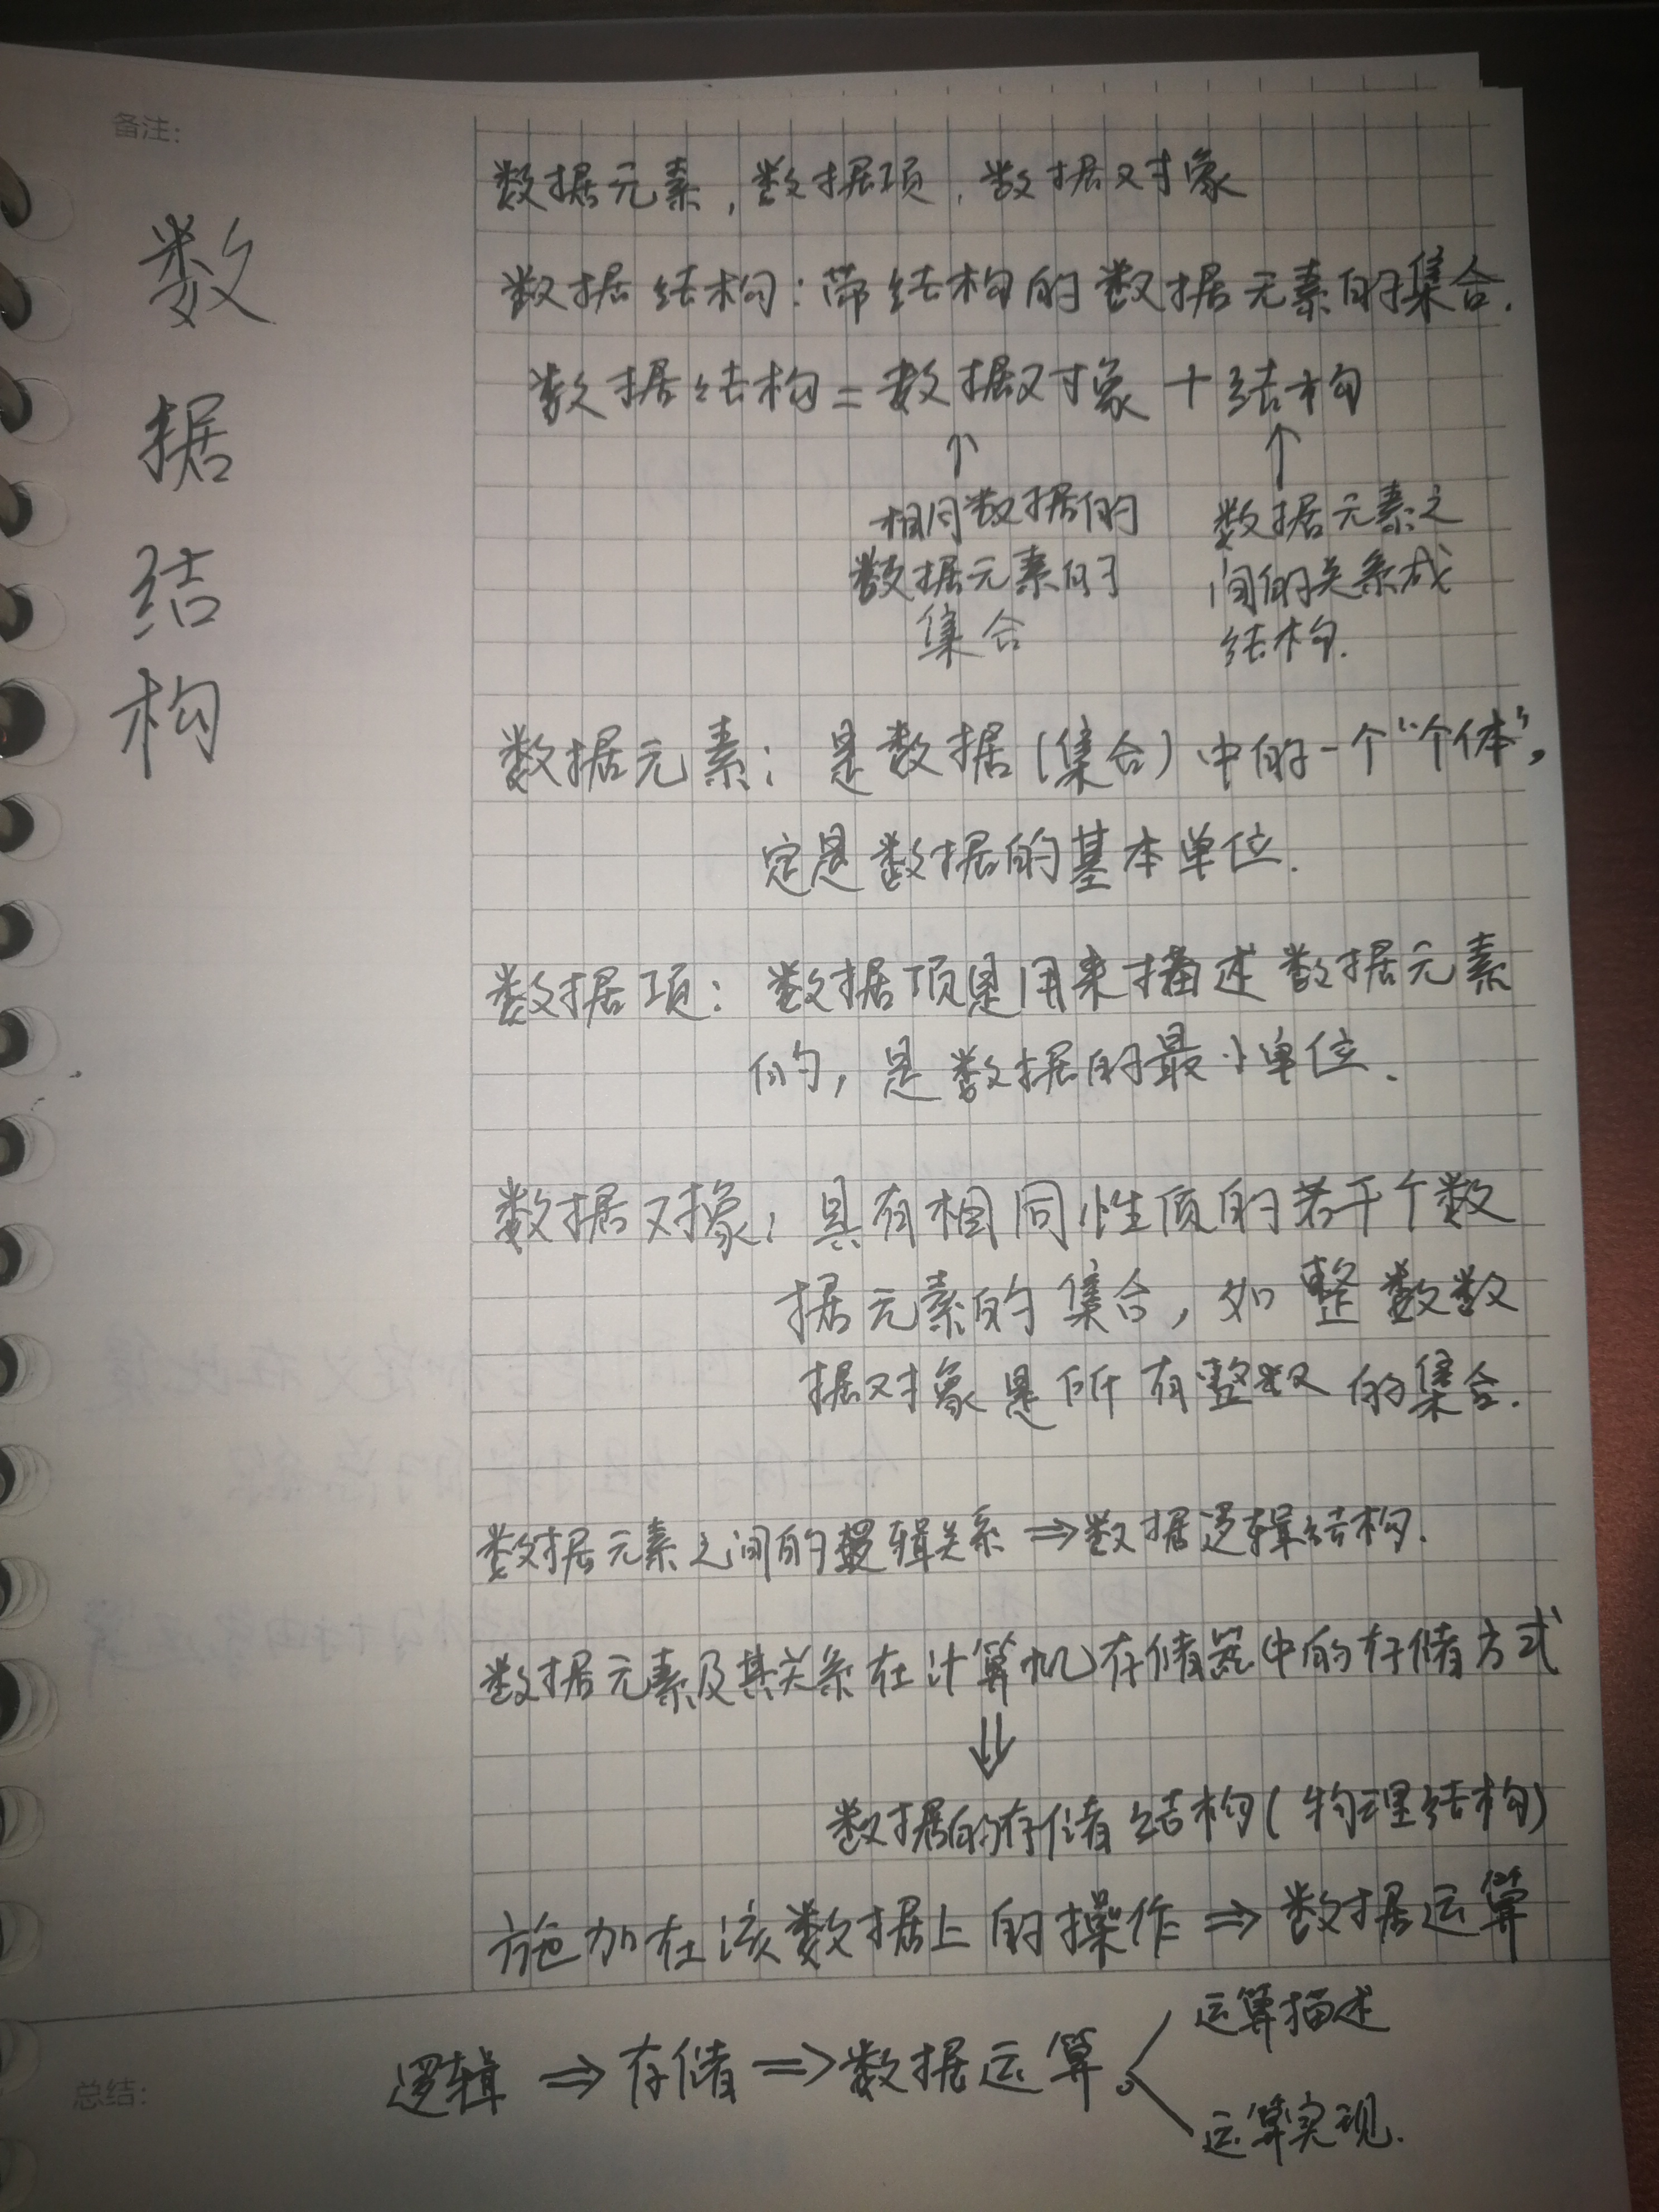 备注:
数据结构
数据元素,数据项,数据对象
数据结构:带结构的数据元素的集合.
数据结构=数据对象+结构
↑ ↑
相同数据的
数据元素的
集合
数据元素之
间的关系成
结构.
数据元素: 是数据(集合)中的一个"个体",
定是数据的基本单位.
数据项: 数据项是用来描述数据元素
的,是数据的最小单位.
数据对象: 具有相同性质的若干个数
据元素的集合,如整数数
据对象是所有整数的集合.
数据元素之间的逻辑关系⇒数据逻辑结构.
数据元素及其关系在计算机存储器中的存储方式
⇓
数据的存储结构(物理结构)
施加在该数据上的操作⇒数据运算
总结:
逻辑⇒存储⇒数据运算.
运算描述
运算实现.